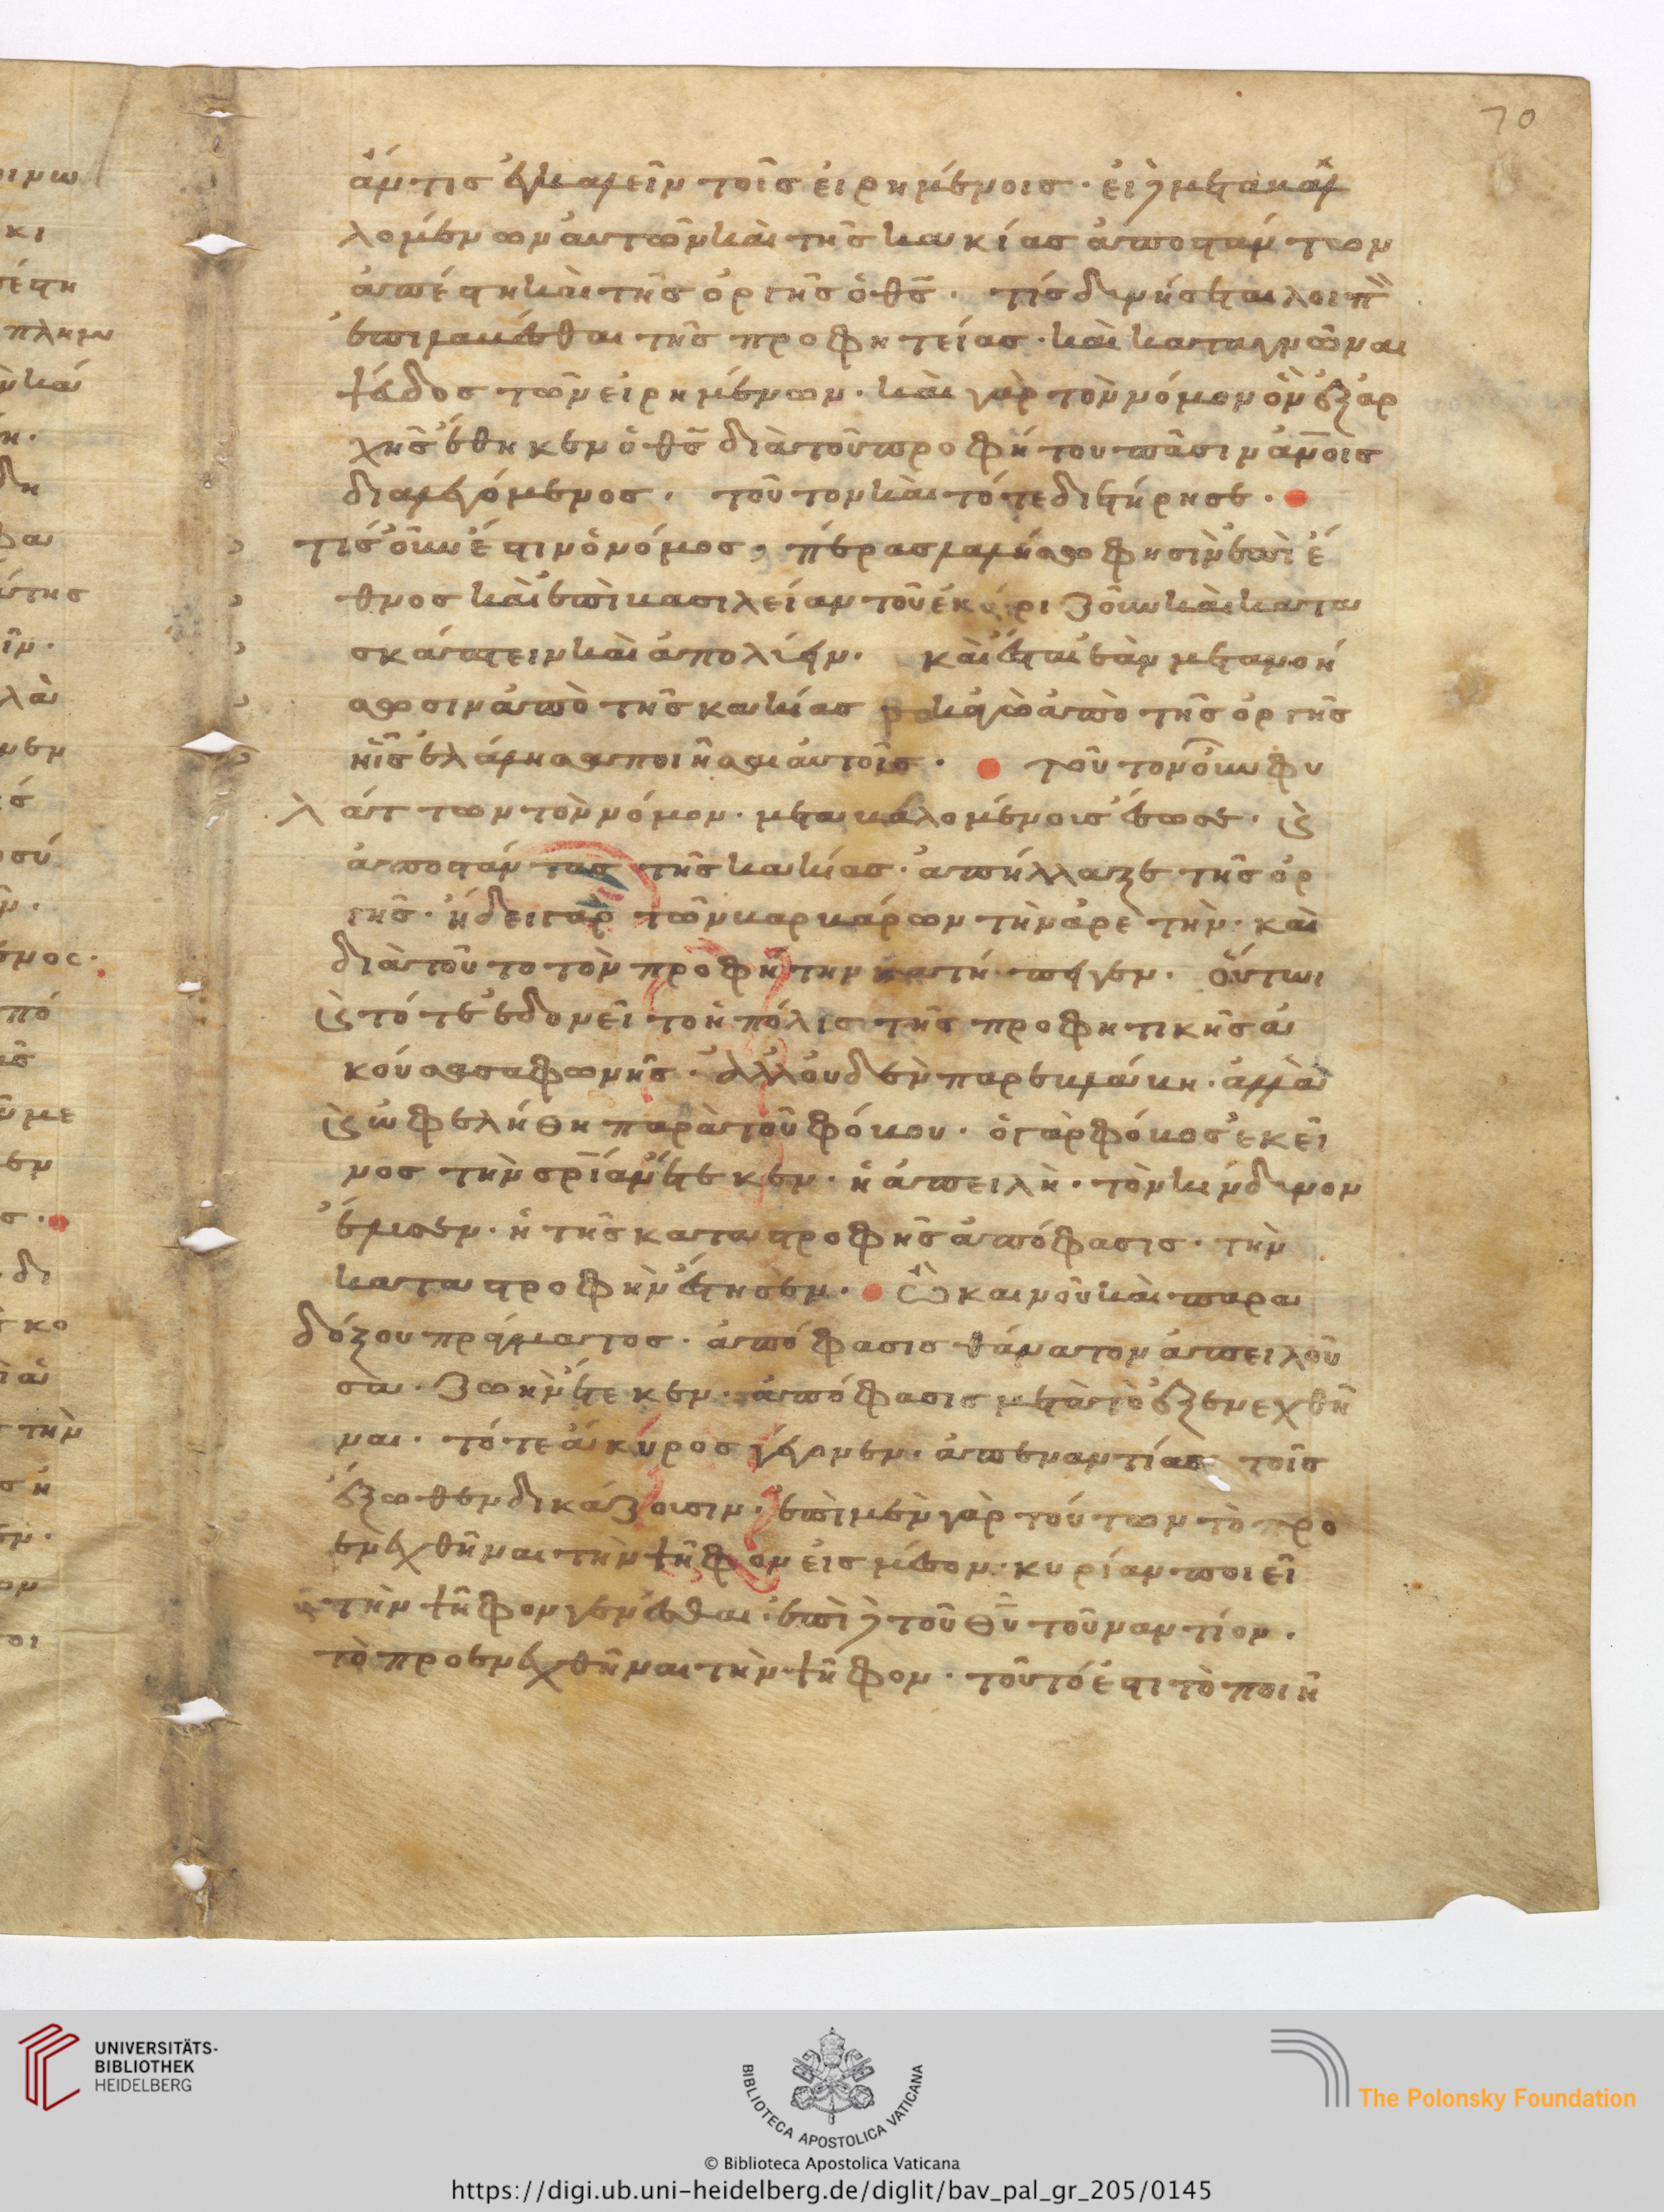 ἄν τις ἐγκαλεῖν τοῖς εἰρημένοις· εἰ δὲ μεταβαλ
λομένων αὐτῶν καὶ τῆς κακίας ἀποστάντων
ἀπέστη καὶ τῆς ὀργῆς ὁ θς̅· τίς δυνήσεται λοιπὸ
ἐπιλαμβέσθαι τῆς προφητείας· καὶ καταγνῶναι
ψεῦδος τῶν εἰρημένων· καὶ γὰρ τὸν νόμον ὃν ἐξ ἀρ
χῆς ἔθηκεν ὁ θς̅ διὰ τοῦ προφήτου πᾶσιν ἀν̅οις
διαλεγόμενος· τοῦτον καὶ τότε διετήρησε·
τίς οὖν ἐστιν ὁ νόμος, πέρας λαλήσω φησὶν ἐπὶ ἔ
θνος καὶ ἐπὶ βασιλείαν τοῦ ἐκριζοῦν καὶ κατα
σκάπτειν καὶ ἀπολύειν· καὶ ἔσται ἐὰν μετανοή
σωσιν ἀπὸ τῆς κακίας κἀγὼ ἀπὸ τῆς ὀργῆς
ἧς ἐλάλησα ποιῆσαι αὐτοῖς· τοῦτον οὖν φυ
λάττων τὸν νόμον· μεταβαλομένοις ἔσωσε· καὶ
ἀποστάντας τῆς κακίας· ἀπήλλαξε τῆς ὀρ
γῆς· ἤδει γὰρ τῶν βαρβάρων τὴν ἀρετὴν· καὶ
διὰ τοῦτο τὸν προφήτην κατήπειγεν· οὕτω
καὶ τότε ἐδονεῖτο ἡ πόλις τῆς προφητικῆς ἀ
κούσασα φωνῆς· ἀλλ' οὐδὲν παρεβλάβη· ἀλλὰ
καὶ ὠφελήθη παρὰ τοῦ φόβου· ὁ γὰρ φόβος ἐκεῖ
νος τὴν σρ̅ίαν ἔτεκεν· ἡ ἀπειλὴ· τὸν κίνδυνον
ἔλυσεν· ἡ τῆς καταστροφῆς ἀπόφασις· τὴν
καταστροφὴν ἔστησεν· ὢ καινοῦ καὶ παρα
δόξου πράγματος· ἀπόφασις θάνατον ἀπειλοῦ
σα· ζωὴν ἔτεκεν· ἀπόφασις μετὰ τὸ ἐξενεχθῆ
ναι· τότε ἄκυρος γέγονεν· ἀπεναντίας τοῖς
ἔξωθεν δικάζουσιν· ἐπὶ μὲν γὰρ τούτων τὸ προ
ενεχθῆναι τὴν ψῆφον εἰς μέσον· κυρίαν ποιεῖ
τὴν ψῆφον γενέσθαι· ἐπὶ δὲ τοῦ θυ̅ τοὐναντίον·
τὸ προενεχθῆναι τὴν ψῆφον· τοῦτό ἐστι τὸ ποιῆ
70
UNIVERSITÄTS-
BIBLIOTHEK
HEIDELBERG
BIBLIOTECA APOSTOLICA VATICANA
The Polonsky Foundation
© Biblioteca Apostolica Vaticana
https://digi.ub.uni-heidelberg.de/diglit/bav_pal_gr_205/0145